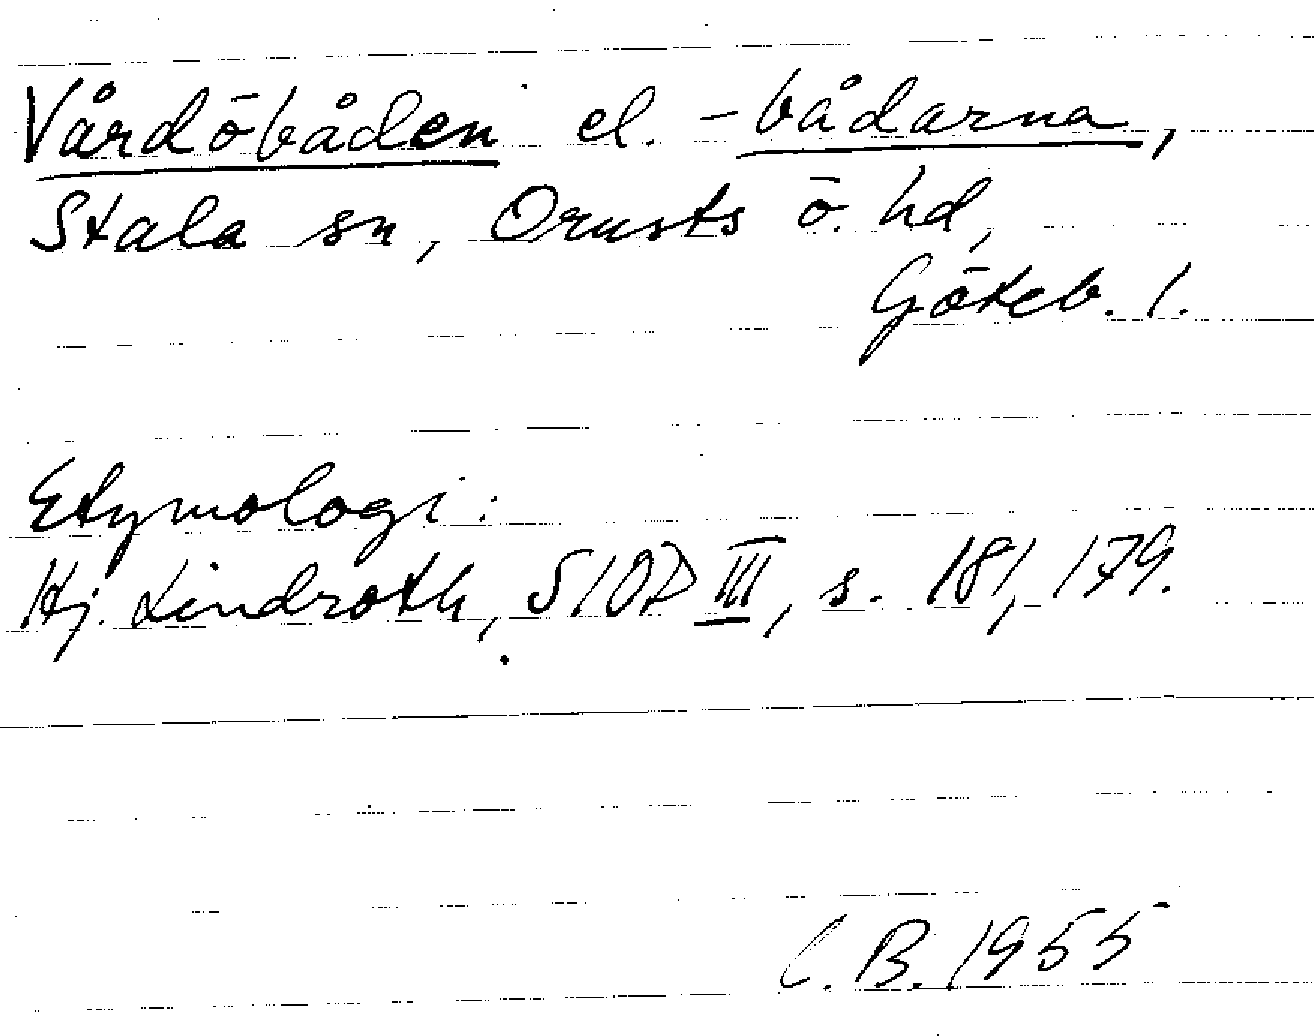 Vårdöbåden el. -bådarna,
Stala sn, Orusts ö. hd,
Göteb. l.
Etymologi:
Hj. Lindroth, SIOD III, s. 181, 179.
C.B. 1955